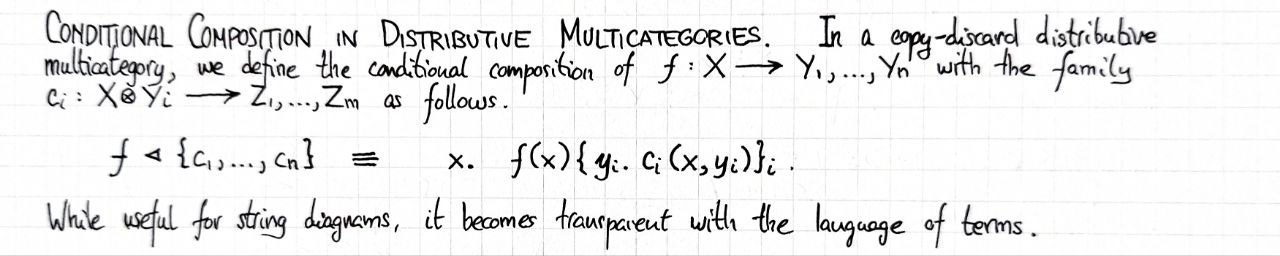 CONDITIONAL COMPOSITION IN DISTRIBUTIVE MULTICATEGORIES. In a copy-discard distributive
multicategory, we define the conditional composition of f : X ⟶ Y₁,...,Yₙ with the family
cᵢ : X⊗Yᵢ ⟶ Z₁,...,Zₘ as follows.
f ◁ {c₁,...,cₙ} ≡ x. f(x){yᵢ. cᵢ(x,yᵢ)}ᵢ.
While useful for string diagrams, it becomes transparent with the language of terms.